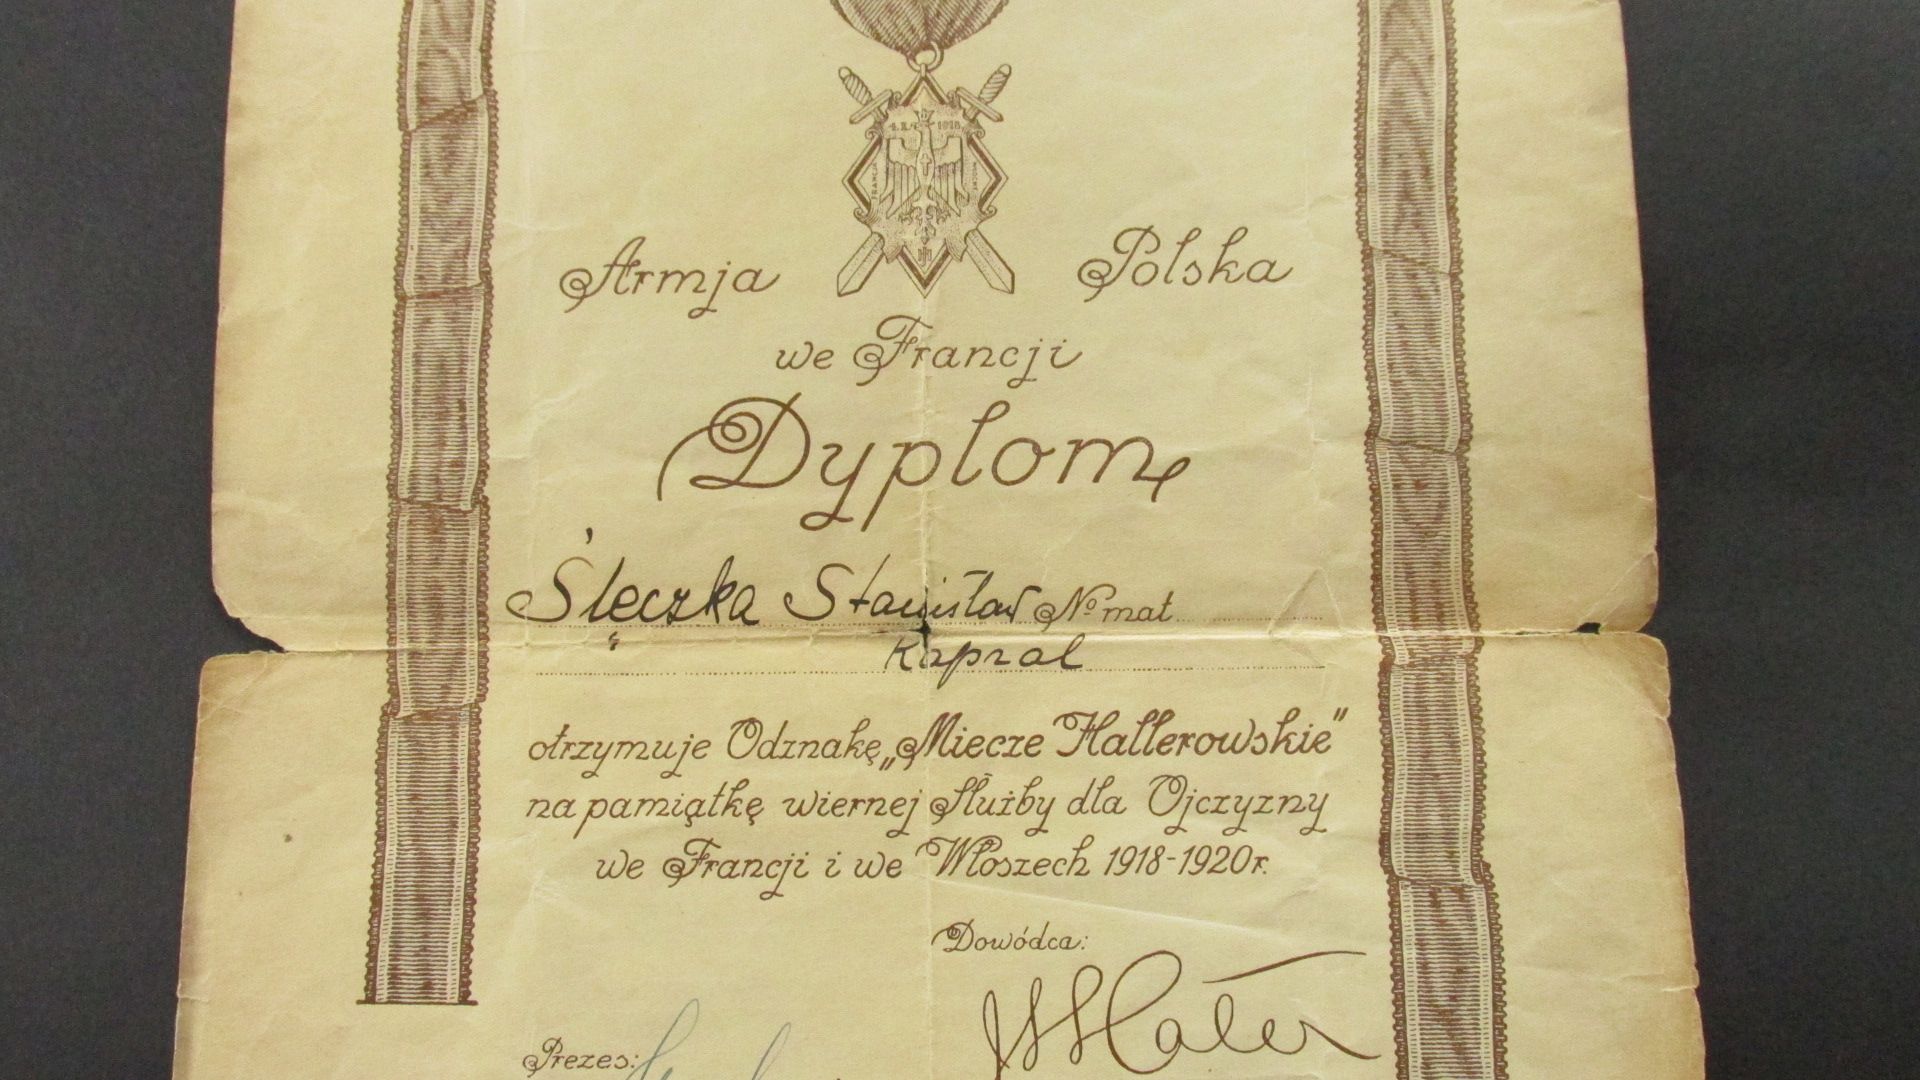 1918
Armja Polska
we Francji
Dyplom
Śleczka Stanisław No mat
Kapral
otrzymuje Odznakę „Miecze Hallerowskie”
na pamiątkę wiernej Służby dla Ojczyzny
we Francji i we Włoszech 1918-1920r.
Dowódca:
Haller
Prezes: